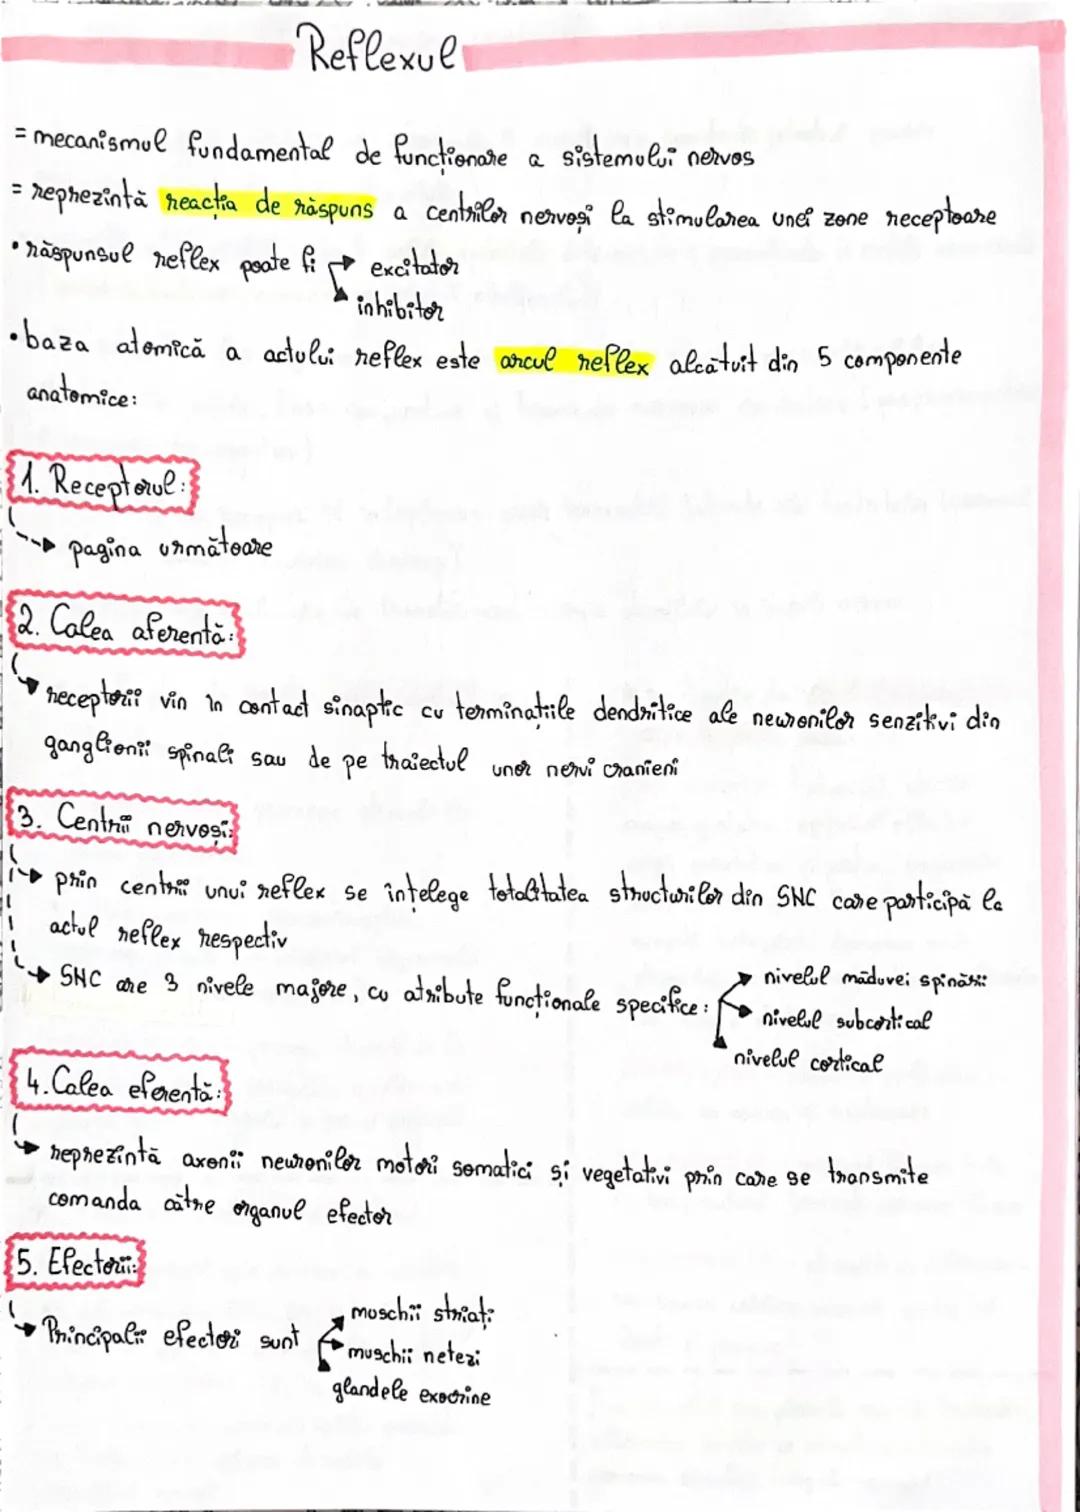 Reflexul
= mecanismul fundamental de funcționare a sistemului nervos
= reprezintă reacția de răspuns a centrilor nervoși la stimularea unei zone receptoare
• răspunsul reflex poate fi → excitator
→ inhibitor
• baza atomică a actului reflex este arcul reflex alcătuit din 5 componente
anatomice:
1. Receptorul:
→ pagina următoare
2. Calea aferentă:
→ receptorii vin în contact sinaptic cu terminațiile dendritice ale neuronilor senzitivi din
ganglionii spinali sau de pe traiectul unor nervi cranieni
3. Centrii nervoși:
→ prin centrii unui reflex se înțelege totalitatea structurilor din SNC care participă la
actul reflex respectiv
→ SNC are 3 nivele majore, cu atribute funcționale specifice: → nivelul măduvei spinării
→ nivelul subcortical
→ nivelul cortical
4. Calea eferentă:
→ reprezintă axonii neuronilor motori somatici și vegetativi prin care se transmite
comanda către organul efector
5. Efectorii:
→ Principalii efectori sunt → muschii striați
→ muschii netezi
→ glandele exocrine